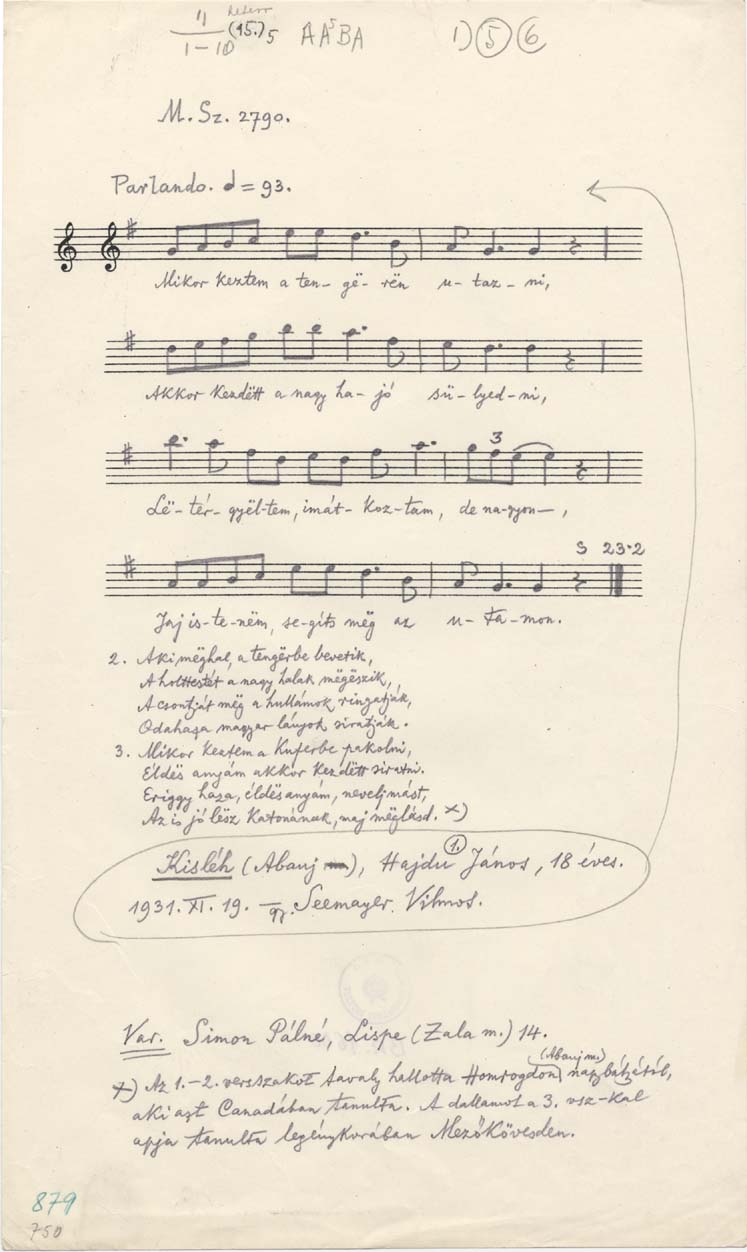 11 (15.) 5 AA⁵BA 1) 5 6
1-10
M. Sz. 2790.
Parlando. = 93.
Mikor keztem a ten- gë- rën u- taz- ni,
Akkor kezdëtt a nagy ha- jó sü- lyed- ni,
3
Lë- tér- gyël-tem, imát- koz- tam, de na-gyon-,
S 23·2
Jaj is- te- nëm, se- gíts mëg az u- ta- mon.
2. Aki mëghal, a tengërbe bevetik,
A holttestét a nagy halak mëgëszik,
A csontját mëg a hullámok ringatják,
Odahaza magyar lányok siratják.
3. Mikor keztem a kuferbe pakolni,
Éldës anyám akkor kezdëtt siratni.
Eriggy haza, éldësanyám, nevelj mást,
Az is jó lësz katonának, maj mëglásd. x)
Kisléh (Abauj ), Hajdu 1. János, 18 éves.
1931. XI. 19. Seemayer Vilmos.
Var. Simon Pálné, Lispe (Zala m.) 14.
(Abauj m.)
x) Az 1.-2. versszakot tavaly hallotta Homrogdon nagybátyjától,
aki azt Canadában tanulta. A dallamot a 3. vsz-kal
apja tanulta legénykorában Mezőkövesden.
879
750